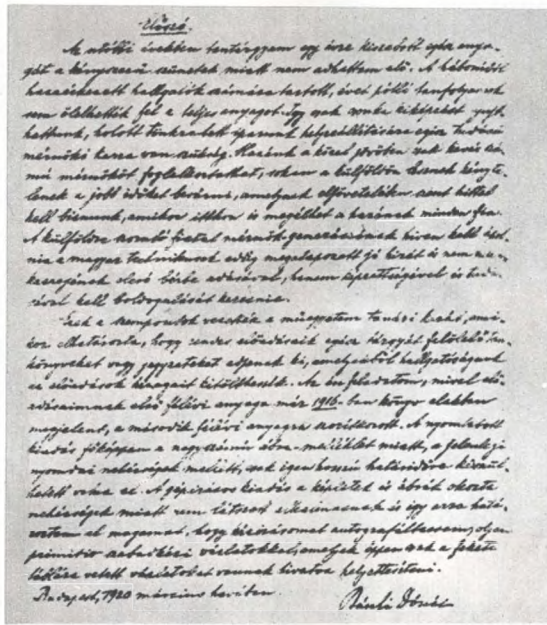 Előszó.
Az utóbbi években tantárgyam egy évre kiszabott egész anya-
gát a kényszerű szünetek miatt nem adhattam elő. A háborúból
hazaérkezett hallgatók számára tartott, évet pótló tanfolyamok
sem ölelhették fel a teljes anyagot. Így csak csonka kiképzést nyújt-
hattunk, holott tönkretett iparunk helyreállítására egész tudású
mérnöki karra van szükség. Hazánk a közel jövőben csak kevés szá-
mú mérnököt foglalkoztathat, sokan a külföldön lesznek kényte-
lenek a jobb időket bevárni, amelynek eljövetelében szent hittel
kell bíznunk, amikor itthon is megélhet a hazának minden fia.
A külföldre szoruló fiatal mérnök-generációnak híven kell ápol-
nia a magyar technikusok eddig megalapozott jó hírét és nem
kezének olcsó bérbe adásával, hanem képzettségével és tudá-
sával kell boldogulását keresnie.
Ezek a szempontok vezették a műegyetem tanári karát, ami-
kor elhatározta, hogy rendes előadásaik egész tárgyát felölelő tan-
könyveket vagy jegyzeteket adjanak ki, amelyekből hallgatóságunk
az előadások hézagait kitölthessék. Az én feladatom, mivel elő-
adásaimnak első félévi anyaga már 1916-ban könyv alakban
megjelent, a második félévi anyagra szorítkozott. A nyomtatott
kiadás főképpen a nagyszámú ábra-melléklet miatt, a jelenlegi
nyomdai nehézségek mellett, csak igen hosszú határidőre készül-
hetett volna el. A gépírásos kiadás a képletek és ábrák okozta
nehézségek miatt nem látszott alkalmasnak és így arra hatá-
roztam el magamat, hogy kéziratomat autografáltatom, olyan
primitív szabadkézi vázlatokkal, amelyek éppen csak a fekete
táblára vetett vázlatokat vannak hivatva helyettesíteni.
Budapest, 1920 március havában.
Bánki Donát